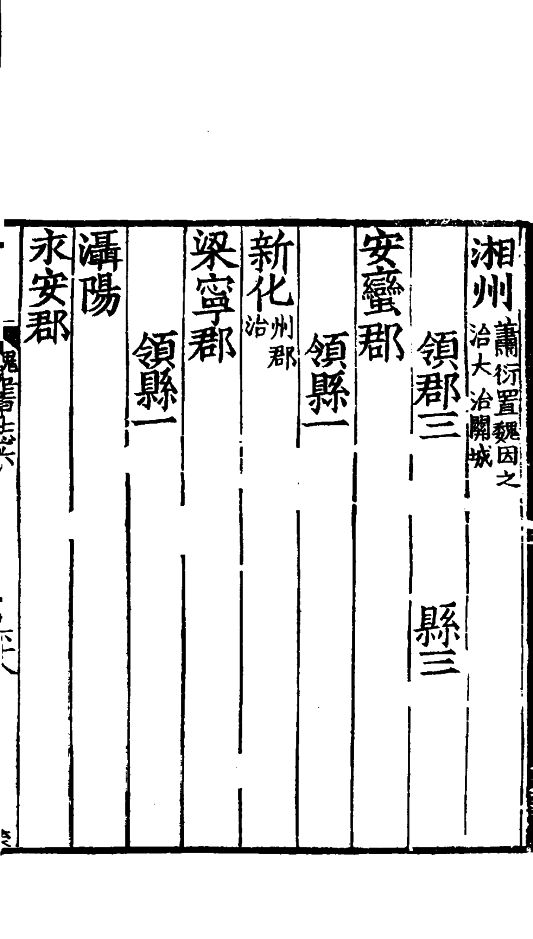 湘州蕭衍置魏因之治大治關城
領郡三縣三
安蠻郡
領縣一
新化州郡治
梁寧郡
領縣一
灄陽
永安郡